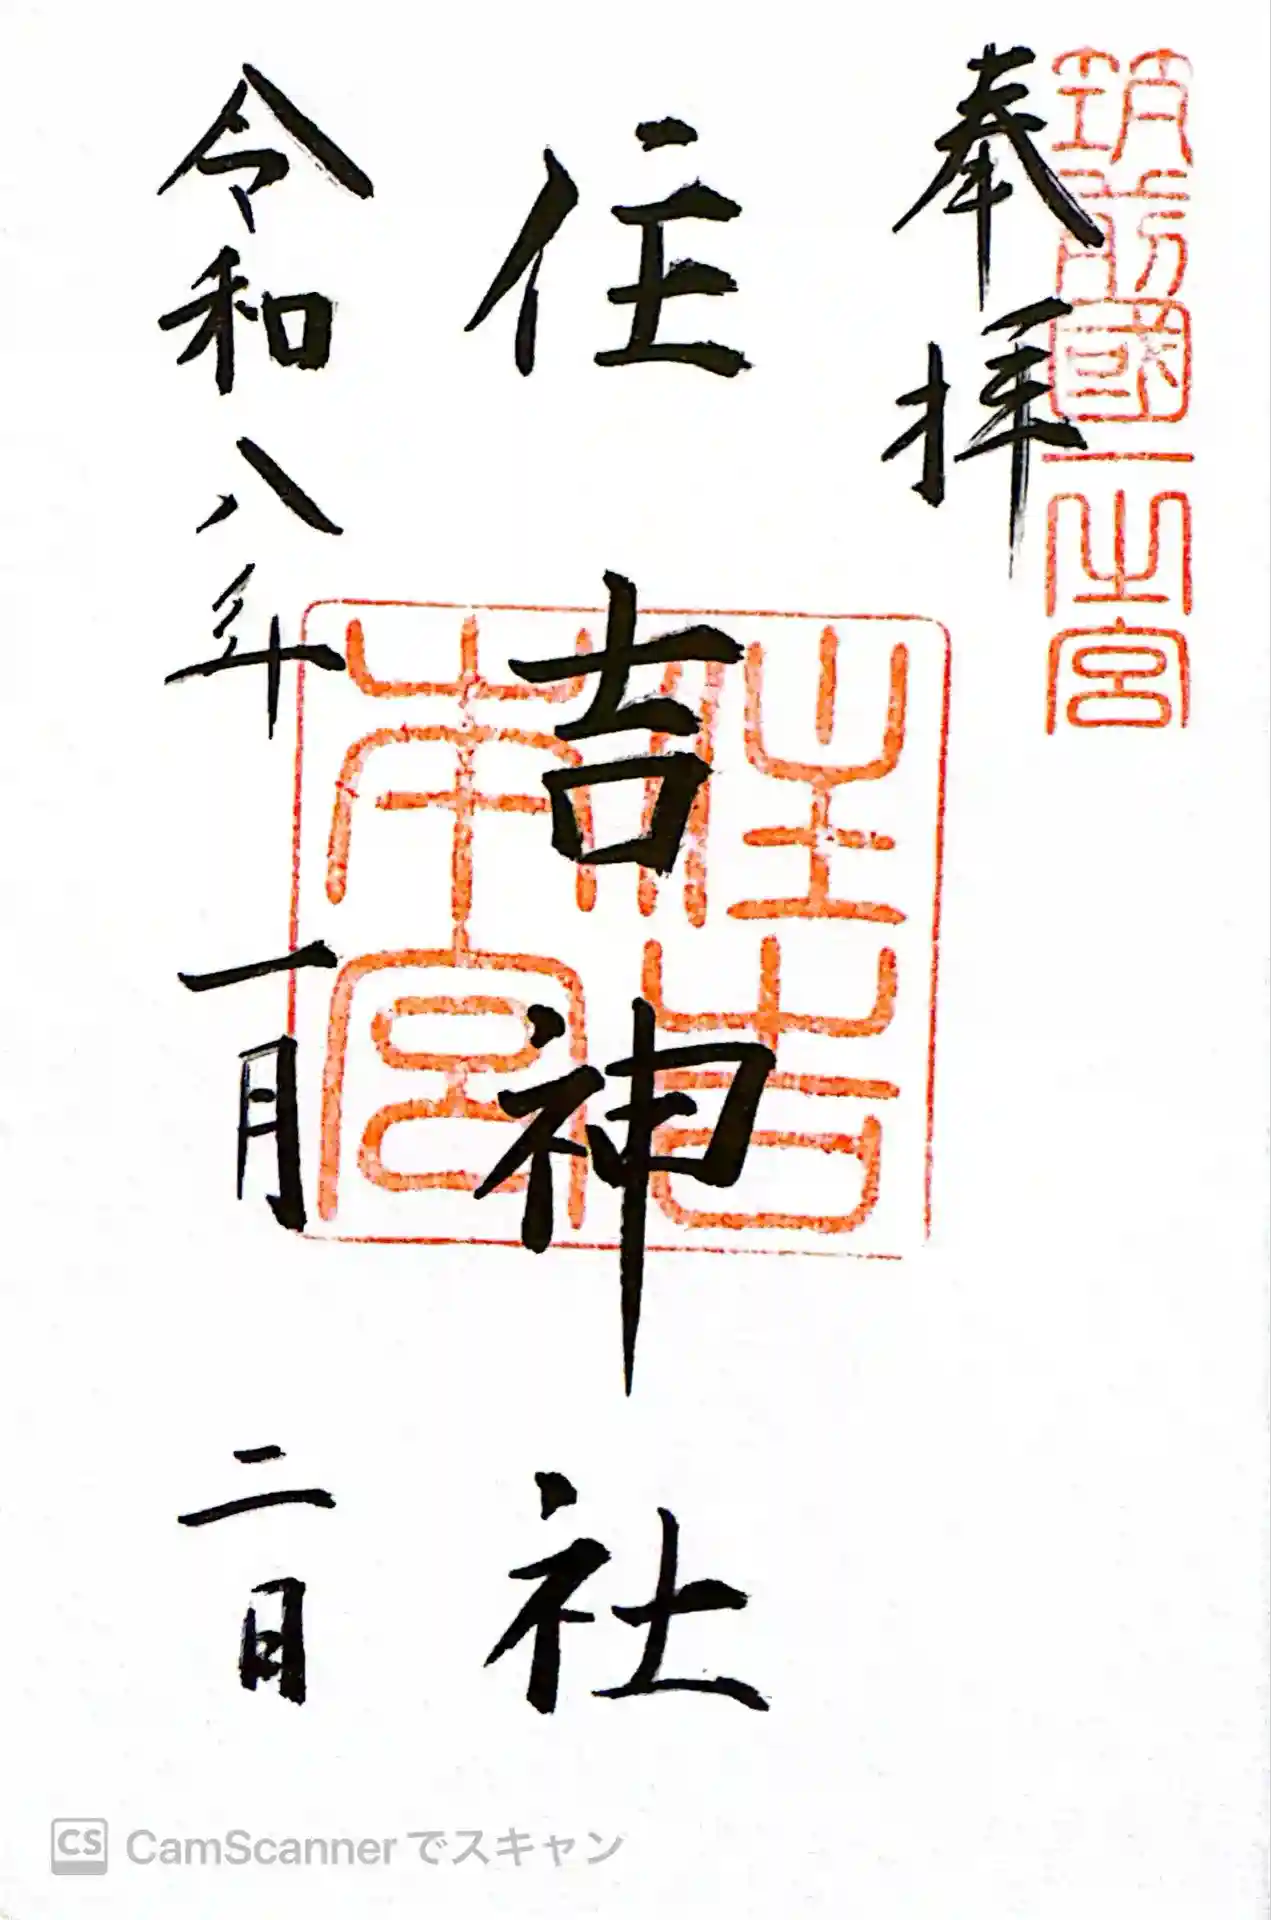 筑前國一之宮
奉拝
住吉神社
住吉本宮
令和八年一月二日
CS CamScannerでスキャン